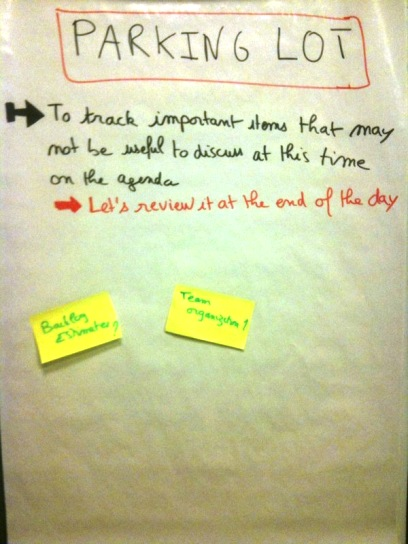 PARKING LOT
To track important items that may
not be useful to discuss at this time
on the agenda
Let's review it at the end of the day
Backlog
Estimates?
Team
organization?